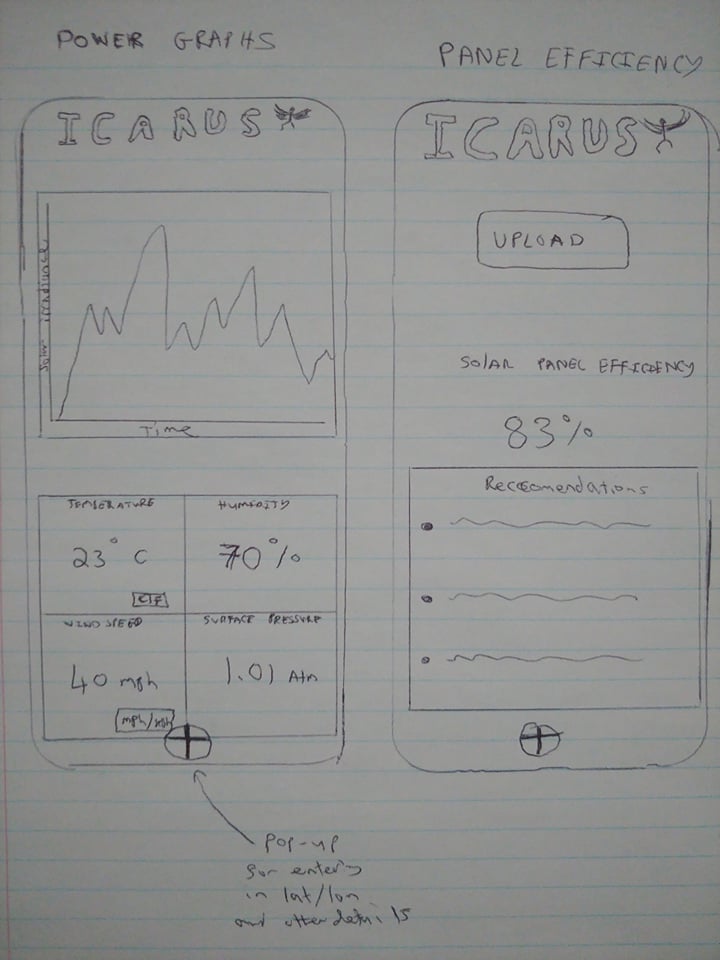 POWER GRAPHS
PANEL EFFICIENCY
ICARUS
Solar irradiance
Time
TEMPERATURE
HUMIDITY
23° C
70%
WIND SPEED
SURFACE PRESSURE
40 mph
1.01 Atm
mph/
Pop-up
for entery
in lat/lon
and other details
ICARUS
UPLOAD
SOLAR PANEL EFFICIENCY
83%
Reccomendations